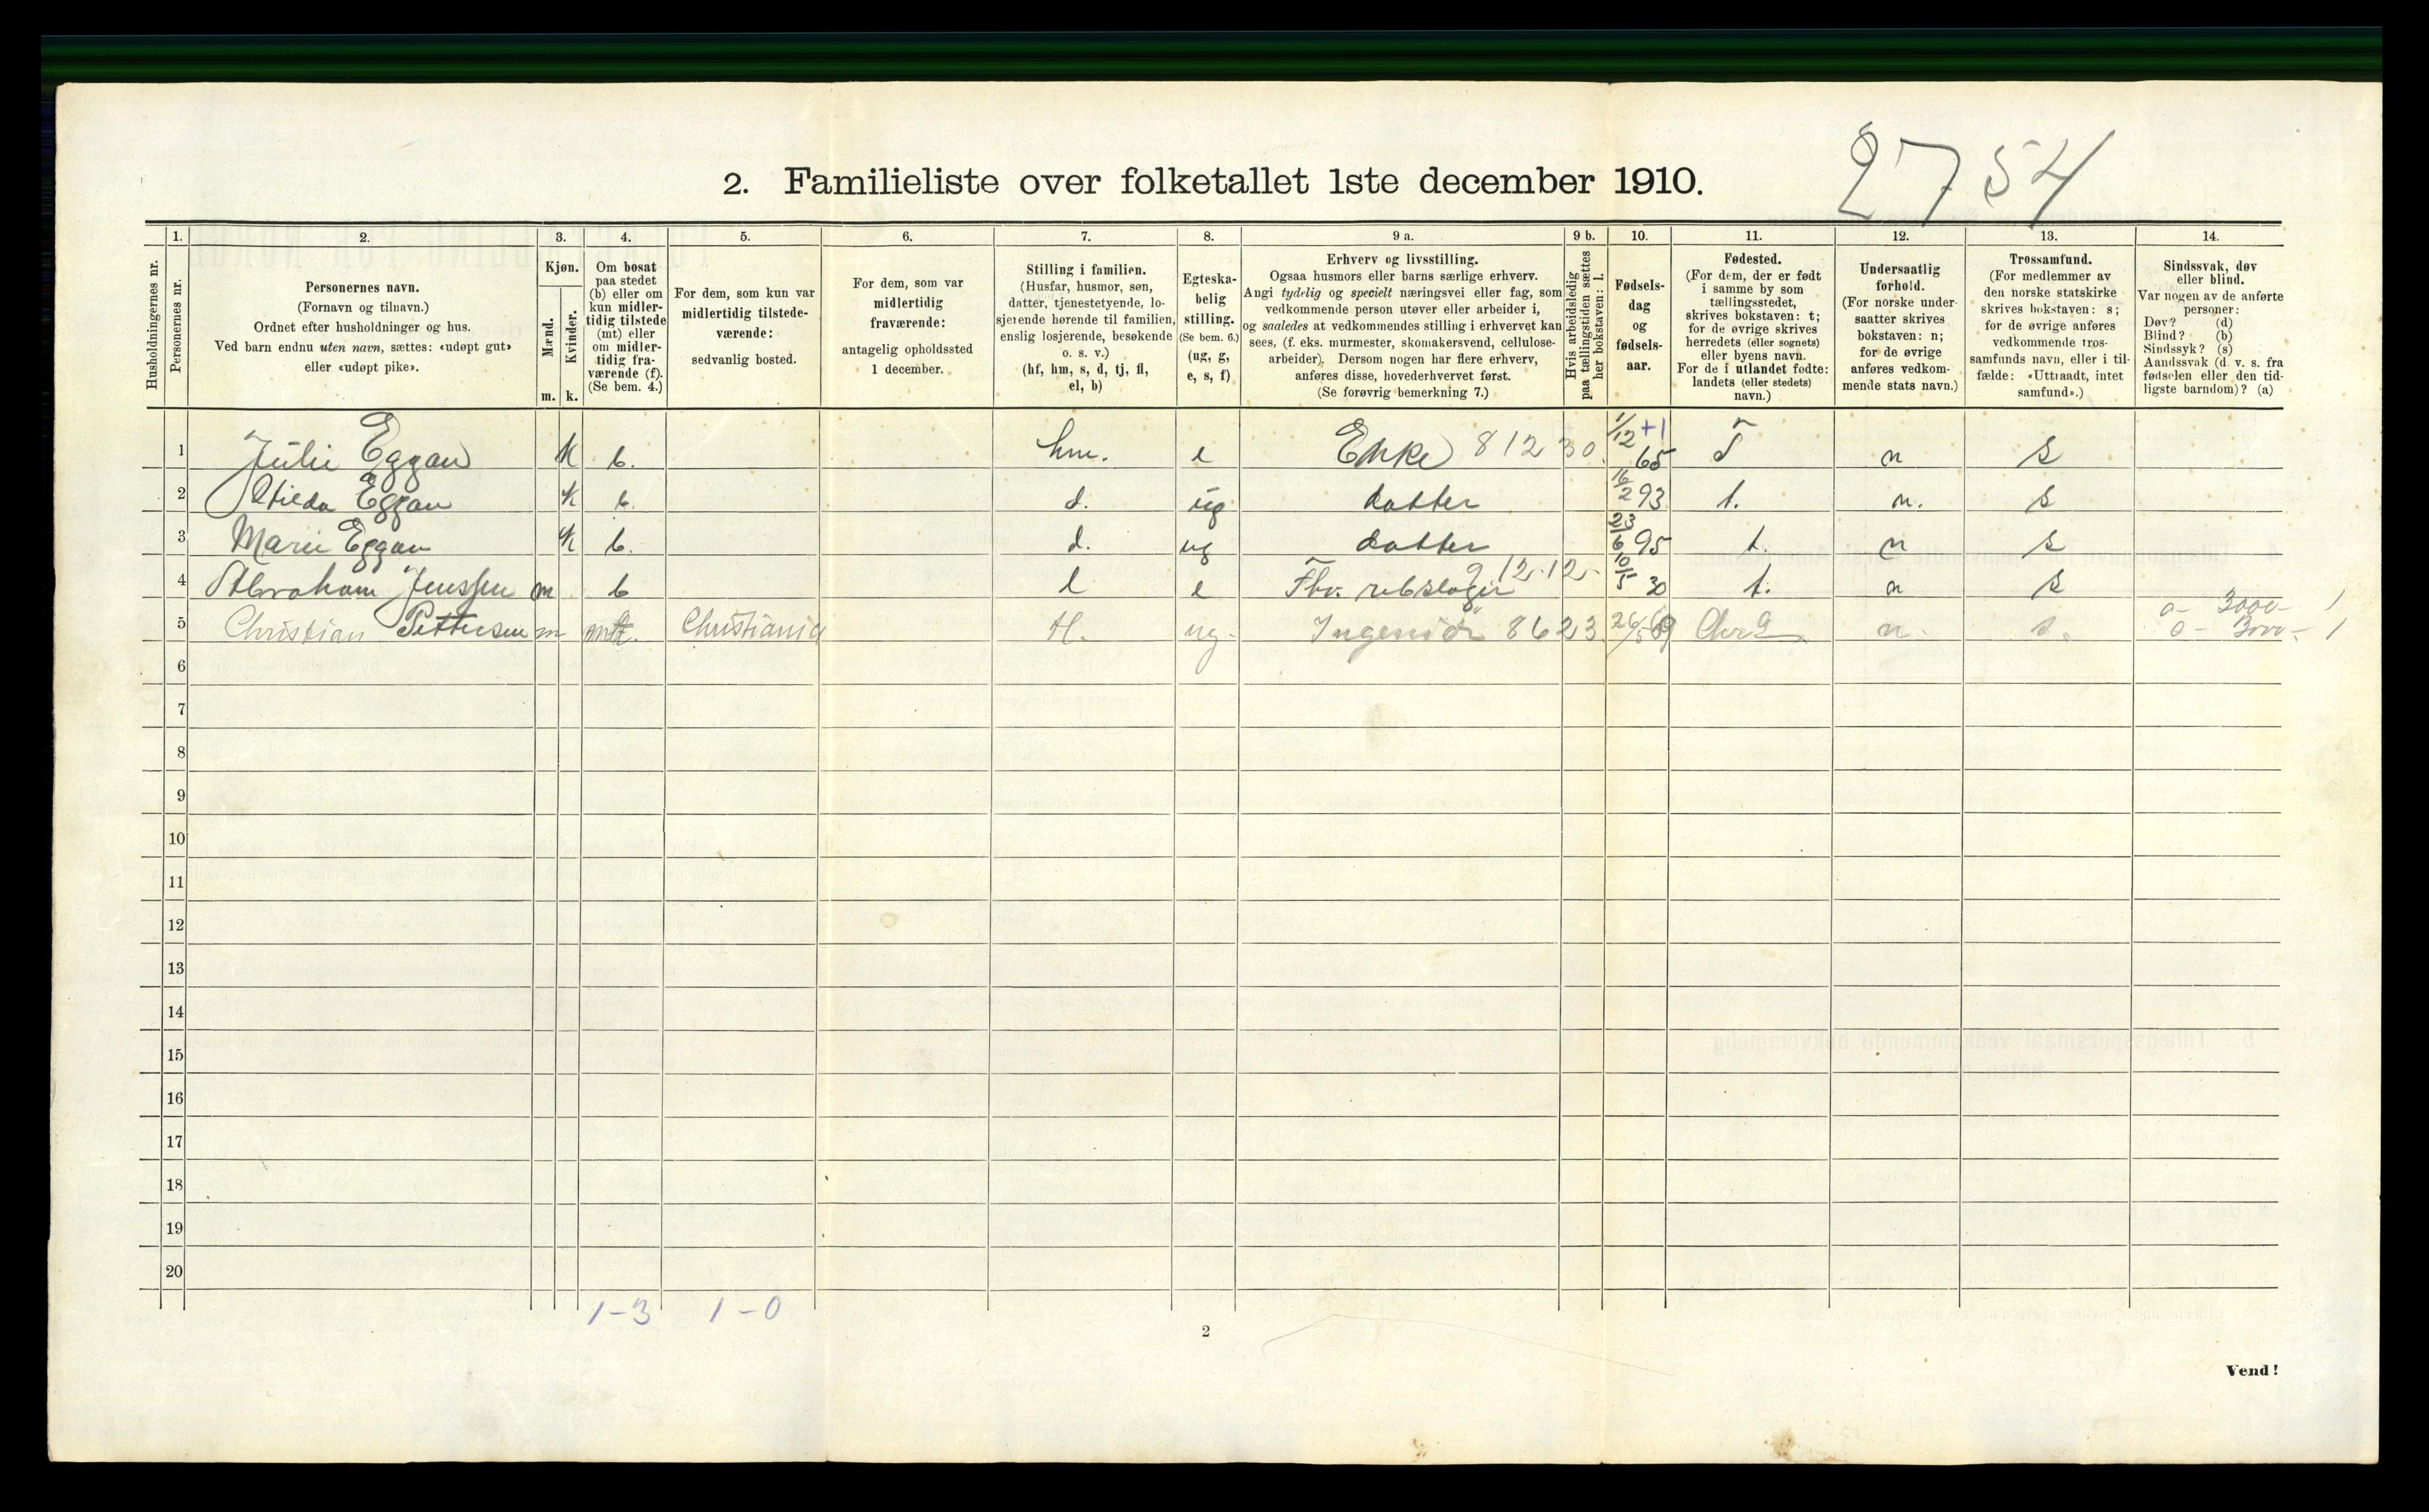 2754
2. Familieliste over folketallet 1ste december 1910.
Husholdningernes nr.
1. Personernes nr.
2. Personernes navn.
(Fornavn og tilnavn.)
Ordnet efter husholdninger og hus.
Ved barn endnu uten navn, sættes: «udøpt gut»
eller «udøpt pike».
3. Kjøn.
Mænd. Kvinder.
m. k.
4. Om bosat
paa stedet
(b) eller om
kun midler-
tidig tilstede
(mt) eller
om midler-
tidig fra-
værende (f).
(Se bem. 4.)
5. For dem, som kun var
midlertidig tilstede-
værende:
sedvanlig bosted.
6. For dem, som var
midlertidig
fraværende:
antagelig opholdssted
1 december.
7. Stilling i familien.
(Husfar, husmor, søn,
datter, tjenestetyende, lo-
sjerende hørende til familien,
enslig losjerende, besøkende
o. s. v.)
(hf, hm, s, d, tj, fl,
el, b)
8. Egteska-
belig
stilling.
(Se bem. 6.)
(ug, g,
e, s, f)
9 a. Erhverv og livsstilling.
Ogsaa husmors eller barns særlige erhverv.
Angi tydelig og specielt næringsvei eller fag, som
vedkommende person utøver eller arbeider i,
og saaledes at vedkommendes stilling i erhvervet kan
sees, (f. eks. murmester, skomakersvend, cellulose-
arbeider). Dersom nogen har flere erhverv,
anføres disse, hovederhvervet først.
(Se forøvrig bemerkning 7.)
9 b. Hvis arbeidsledig
paa tællingstiden sættes
her bokstaven: l.
10. Fødsels-
dag
og
fødsels-
aar.
11. Fødested.
(For dem, der er født
i samme by som
tællingsstedet,
skrives bokstaven: t;
for de øvrige skrives
herredets (eller sognets)
eller byens navn.
For de i utlandet fødte:
landets (eller stedets)
navn.)
12. Undersaatlig
forhold.
(For norske under-
saatter skrives
bokstaven: n;
for de øvrige
anføres vedkom-
mende stats navn.)
13. Trossamfund.
(For medlemmer av
den norske statskirke
skrives bokstaven: s;
for de øvrige anføres
vedkommende tros-
samfunds navn, eller i til-
fælde: «Uttraadt, intet
samfund».)
14. Sindssvak, døv
eller blind.
Var nogen av de anførte
personer:
Døv? (d)
Blind? (b)
Sindssyk? (s)
Aandssvak (d. v. s. fra
fødselen eller den tid-
ligste barndom)? (a)
1 Julie Eggan k b. hm. e Enke 81230. 1/12 +1 65 T n s
2 Eggan k b. d. ug datter 16/2 93 t. n. s
3 Marie Eggan k b. d. ug datter 23/6 95 t. n s
4 Abraham Jenssen m b l e Fhv. rebslager 912.12- 10/5 30 t. n s
5 Christian Pettersen m mt. Christiania ug. Ingeniør 8623 26/5 69 Chra n. s. 0- 3000- 1
0- 3000- 1
6
7
8
9
10
11
12
13
14
15
16
17
18
19
20
1-3 1-0
2
Vend!